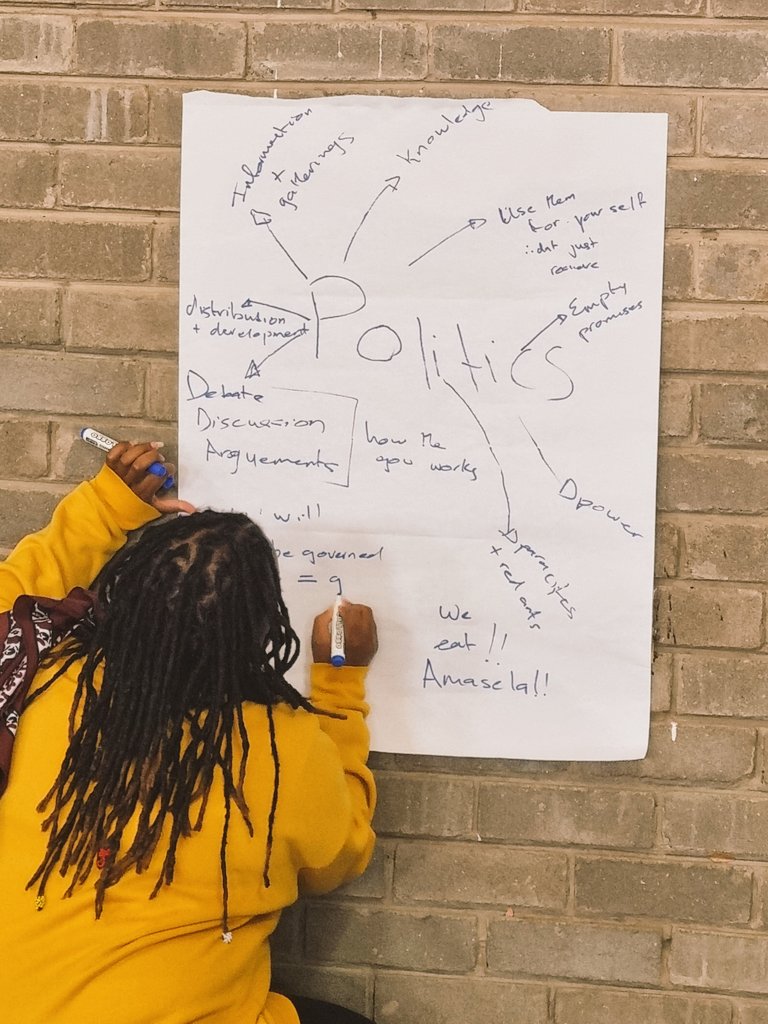 Information
+
gatherings
Knowledge
Use them
for yourself
just
Empty
promises
distribution
+ development
Politics
Debate
Discussion
Arguements
how the
gov works
power
i will
be governed
= g
+ red ants
We
eat!!
Amasela!!